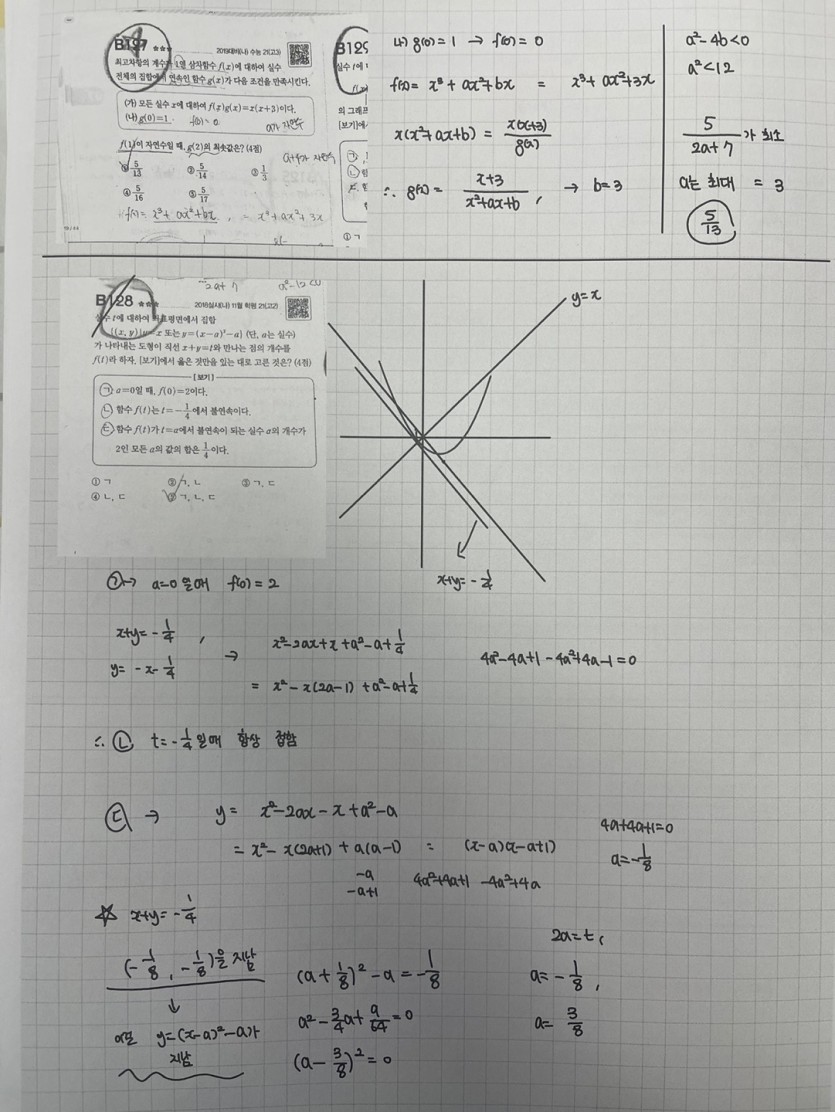 B127 ★★★ 2019대비(나) 수능 21(고3)
최고차항의 계수가 1인 삼차함수 f(x)에 대하여 실수
전체의 집합에서 연속인 함수 g(x)가 다음 조건을 만족시킨다.
(가) 모든 실수 x에 대하여 f(x)g(x)=x(x+3)이다.
(나) g(0)=1 f(0)=0 a가 자연수
f(1)이 자연수일 때, g(2)의 최솟값은? (4점)
a+4가 자연수
① 5/13 ② 5/14 ③ 1/3
④ 5/16 ⑤ 5/17
f(x)= x³+ax²+bx, = x³+ax²+3x
B129
실수 t에
의 그래프
[보기]에서
① ㄱ
나) g(0)=1 → f(0)=0
f(x)= x³+ax²+bx = x³+ax²+3x
x(x²+ax+b) = x(x+3)/g(x)
∴ g(x)= (x+3)/(x²+ax+b), → b=3
a²-4b<0
a²<12
5/(2a+7) 가 최소
a는 최대 = 3
5/13
2a+7 a²-12<0
B128 ★★★ 2016실시(나) 11월 학평 21(고2)
실수 t에 대하여 좌표평면에서 집합
{(x, y)|y=x 또는 y=(x-a)²-a} (단, a는 실수)
가 나타내는 도형이 직선 x+y=t와 만나는 점의 개수를
f(t)라 하자. [보기]에서 옳은 것만을 있는 대로 고른 것은? (4점)
[보기]
ㄱ. a=0일 때, f(0)=2이다.
ㄴ. 함수 f(t)는 t=-1/4에서 불연속이다.
ㄷ. 함수 f(t)가 t=α에서 불연속이 되는 실수 α의 개수가
2인 모든 a의 값의 합은 1/4이다.
① ㄱ ② ㄱ, ㄴ ③ ㄱ, ㄷ
④ ㄴ, ㄷ ⑤ ㄱ, ㄴ, ㄷ
y=x
x+y=-1/4
㉠→ a=0일때 f(0)=2
x+y=-1/4,
y= -x-1/4
→ x²-2ax+x+a²-a+1/4
= x²-x(2a-1)+a²-a+1/4
4a²-4a+1-4a²+4a-1=0
∴ ㉡ t=-1/4일때 항상 접함
㉢ → y= x²-2ax-x+a²-a
= x²-x(2a+1)+a(a-1) = (x-a)(x-a+1)
-a
-a+1
4a²+4a+1 -4a²+4a
4a+4a+1=0
a=-1/8
☆ x+y=-1/4
(-1/8, -1/8)을 지남
↓
이또 y=(x-a)²-a가
지남
(a+1/8)²-a=-1/8
a²-3/4a+9/64=0
(a-3/8)²=0
2a=t,
a=-1/8,
a=3/8